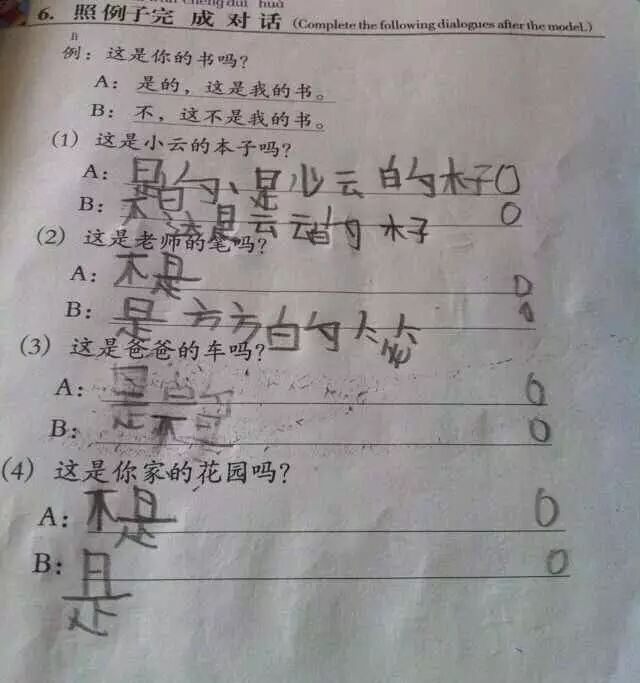 6. 照例子完成对话 (Complete the following dialogues after the model.)
lì
例：这是你的书吗？
A：是的，这是我的书。
B：不，这不是我的书。
(1) 这是小云的本子吗？
A：是的、是小云的木子。
B：不是这是云云的木子。
(2) 这是老师的笔吗？
A：不是。
B：是方方的笔。
(3) 这是爸爸的车吗？
A：是。
B：不是。
(4) 这是你家的花园吗？
A：不是。
B：是。